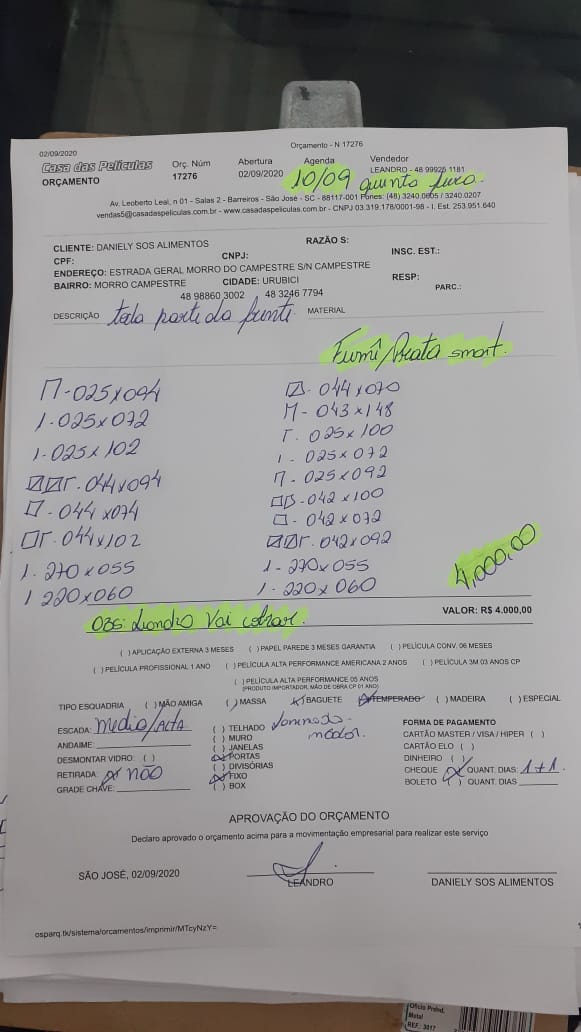 Orçamento - N 17276
02/09/2020
Casa das Películas Orç. Núm Abertura Agenda Vendedor
ORÇAMENTO 17276 02/09/2020 10/09 quinta feira. LEANDRO - 48 99925 1181
Av. Leoberto Leal, n 01 - Salas 2 - Barreiros - São José - SC - 88117-001 Fones: (48) 3240.0605 / 3240.0207
vendas5@casadaspeliculas.com.br - www.casadaspeliculas.com.br - CNPJ 03.319.178/0001-98 - I. Est. 253.951.640
CLIENTE: DANIELY SOS ALIMENTOS RAZÃO S:
CPF: CNPJ: INSC. EST.:
ENDEREÇO: ESTRADA GERAL MORRO DO CAMPESTRE S/N CAMPESTRE
BAIRRO: MORRO CAMPESTRE CIDADE: URUBICI RESP:
48 98860 3002 48 3246 7794 PARC.:
DESCRIÇÃO toda parte da frente. MATERIAL
Fumê/Prata smart.
025x094 044x070
1-025x072 043x148
1-025x102 025x100
044x094 1-025x072
044x074 025x092
044x102 042x100
1-270x055 042x072
1 220x060 042x092
1-270x055
1-220x060
4.000,00
OBS: Leandro Vai cobrar.
VALOR: R$ 4.000,00
( ) APLICAÇÃO EXTERNA 3 MESES ( ) PAPEL PAREDE 3 MESES GARANTIA ( ) PELÍCULA CONV. 06 MESES
( ) PELÍCULA PROFISSIONAL 1 ANO ( ) PELÍCULA ALTA PERFORMANCE AMERICANA 2 ANOS ( ) PELÍCULA 3M 03 ANOS CP
( ) PELÍCULA ALTA PERFORMANCE 05 ANOS
(PRODUTO IMPORTADOR, MÃO DE OBRA CP 01 ANO)
TIPO ESQUADRIA ( ) MÃO AMIGA ( ) MASSA (x) BAGUETE (x) TEMPERADO ( ) MADEIRA ( ) ESPECIAL
ESCADA: media/ALTA ( ) TELHADO FORMA DE PAGAMENTO
ANDAIME: ( ) MURO CARTÃO MASTER / VISA / HIPER ( )
( ) JANELAS CARTÃO ELO ( )
DESMONTAR VIDRO: ( ) (x) PORTAS DINHEIRO ( )
RETIRADA: (x) não ( ) DIVISÓRIAS CHEQUE (x) QUANT. DIAS: 1+1
GRADE CHAVE: (x) FIXO BOLETO ( ) QUANT. DIAS
( ) BOX
APROVAÇÃO DO ORÇAMENTO
Declaro aprovado o orçamento acima para a movimentação empresarial para realizar este serviço
SÃO JOSÉ, 02/09/2020
LEANDRO DANIELY SOS ALIMENTOS
osparq.tk/sistema/orcamentos/imprimir/MTcyNzY=
Ofício Prend.
Metal
REF.: 3017